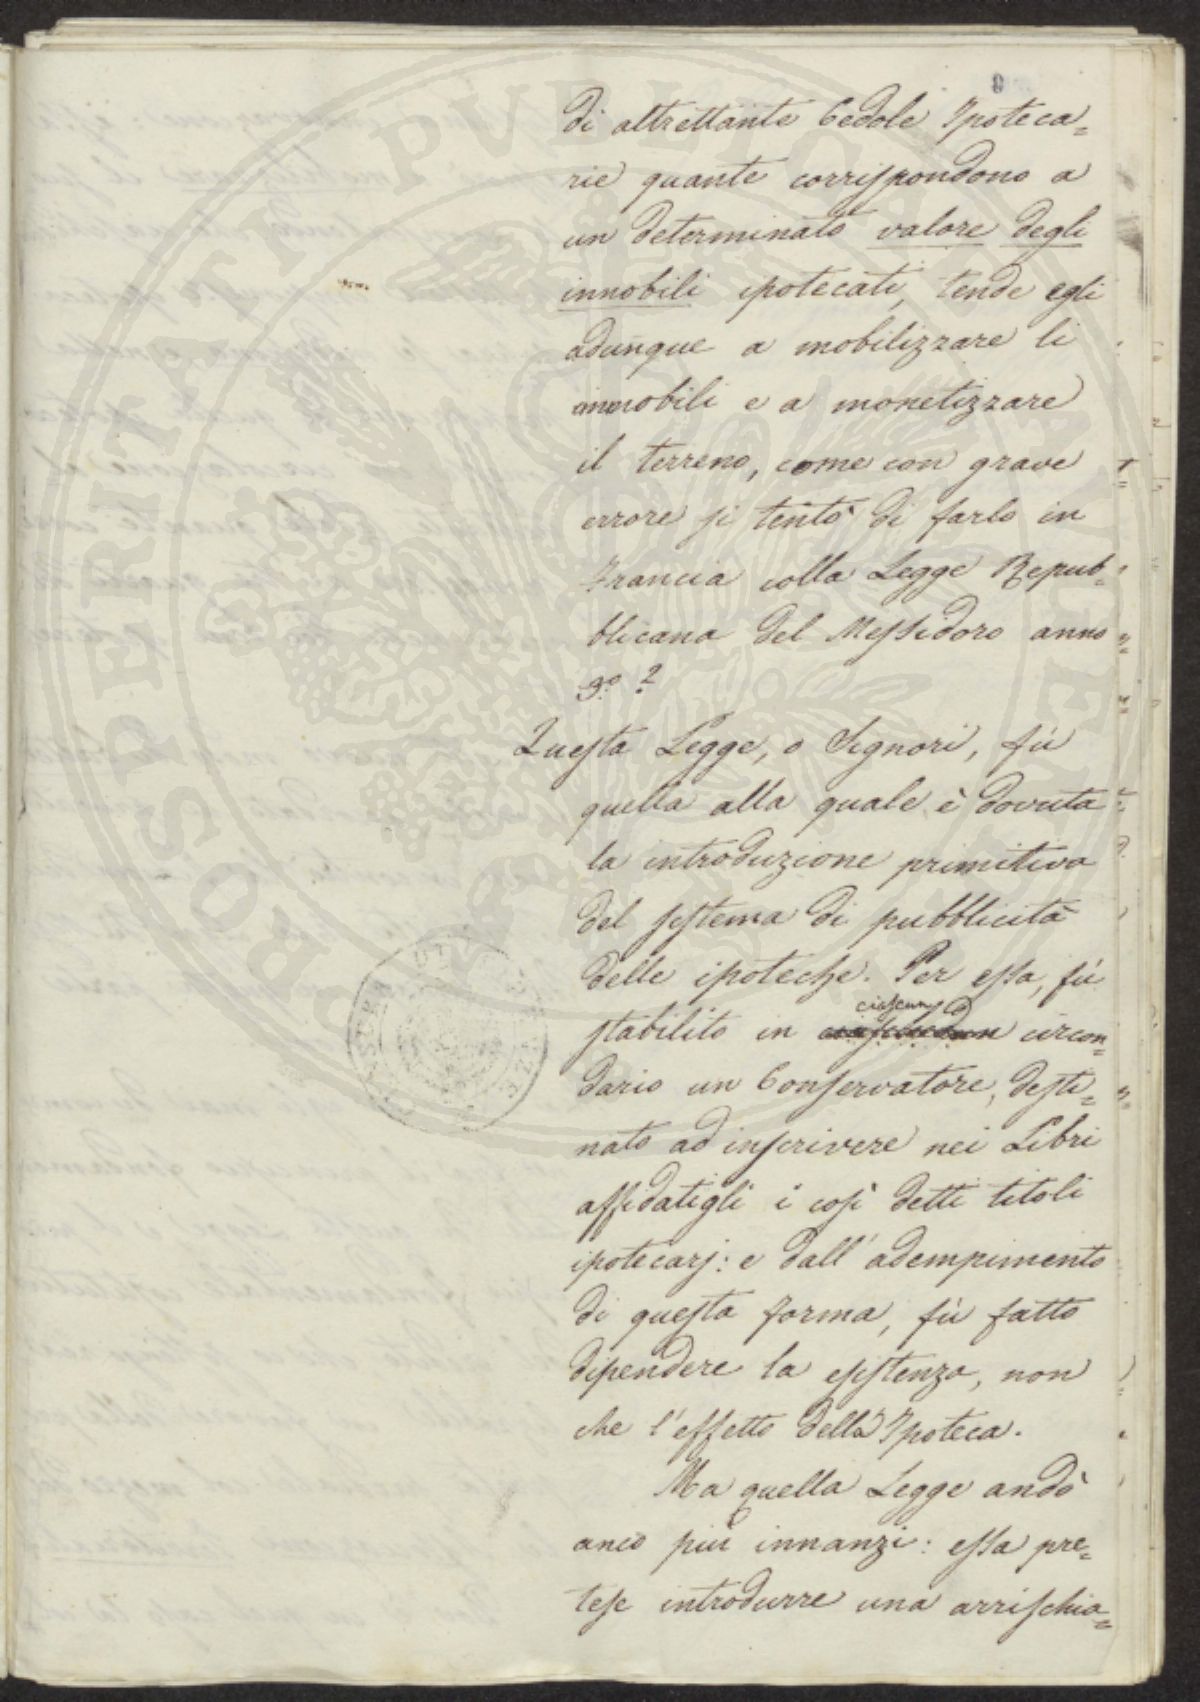 9
di altrettante Cedole Ipoteca=
rie quante corrispondono a
un determinato valore degli
innobili ipotecati, tende egli
adunque a mobilizzare li
immobili e a monetizzare
il terreno, come con grave
errore si tentò di farlo in
Francia colla Legge Repub=
blicana del Messidoro anno
3º ?
Questa Legge, o Signori, fù
quella alla quale è dovuta
la introduzione primitiva
del sistema di pubblicità
delle ipoteche. Per essa, fù
ciascun
stabilito in circon=
dario un Conservatore, desti=
nato ad inscrivere nei Libri
affidatigli i così detti titoli
ipotecarj: e dall'adempimento
di questa forma, fù fatto
dipendere la esistenza, non
che l'effetto della Ipoteca.
Ma quella Legge andò
anco più innanzi: essa pre=
tese introdurre una arrischia=
PROSPERITATI PUBLICAE AUGENDAE